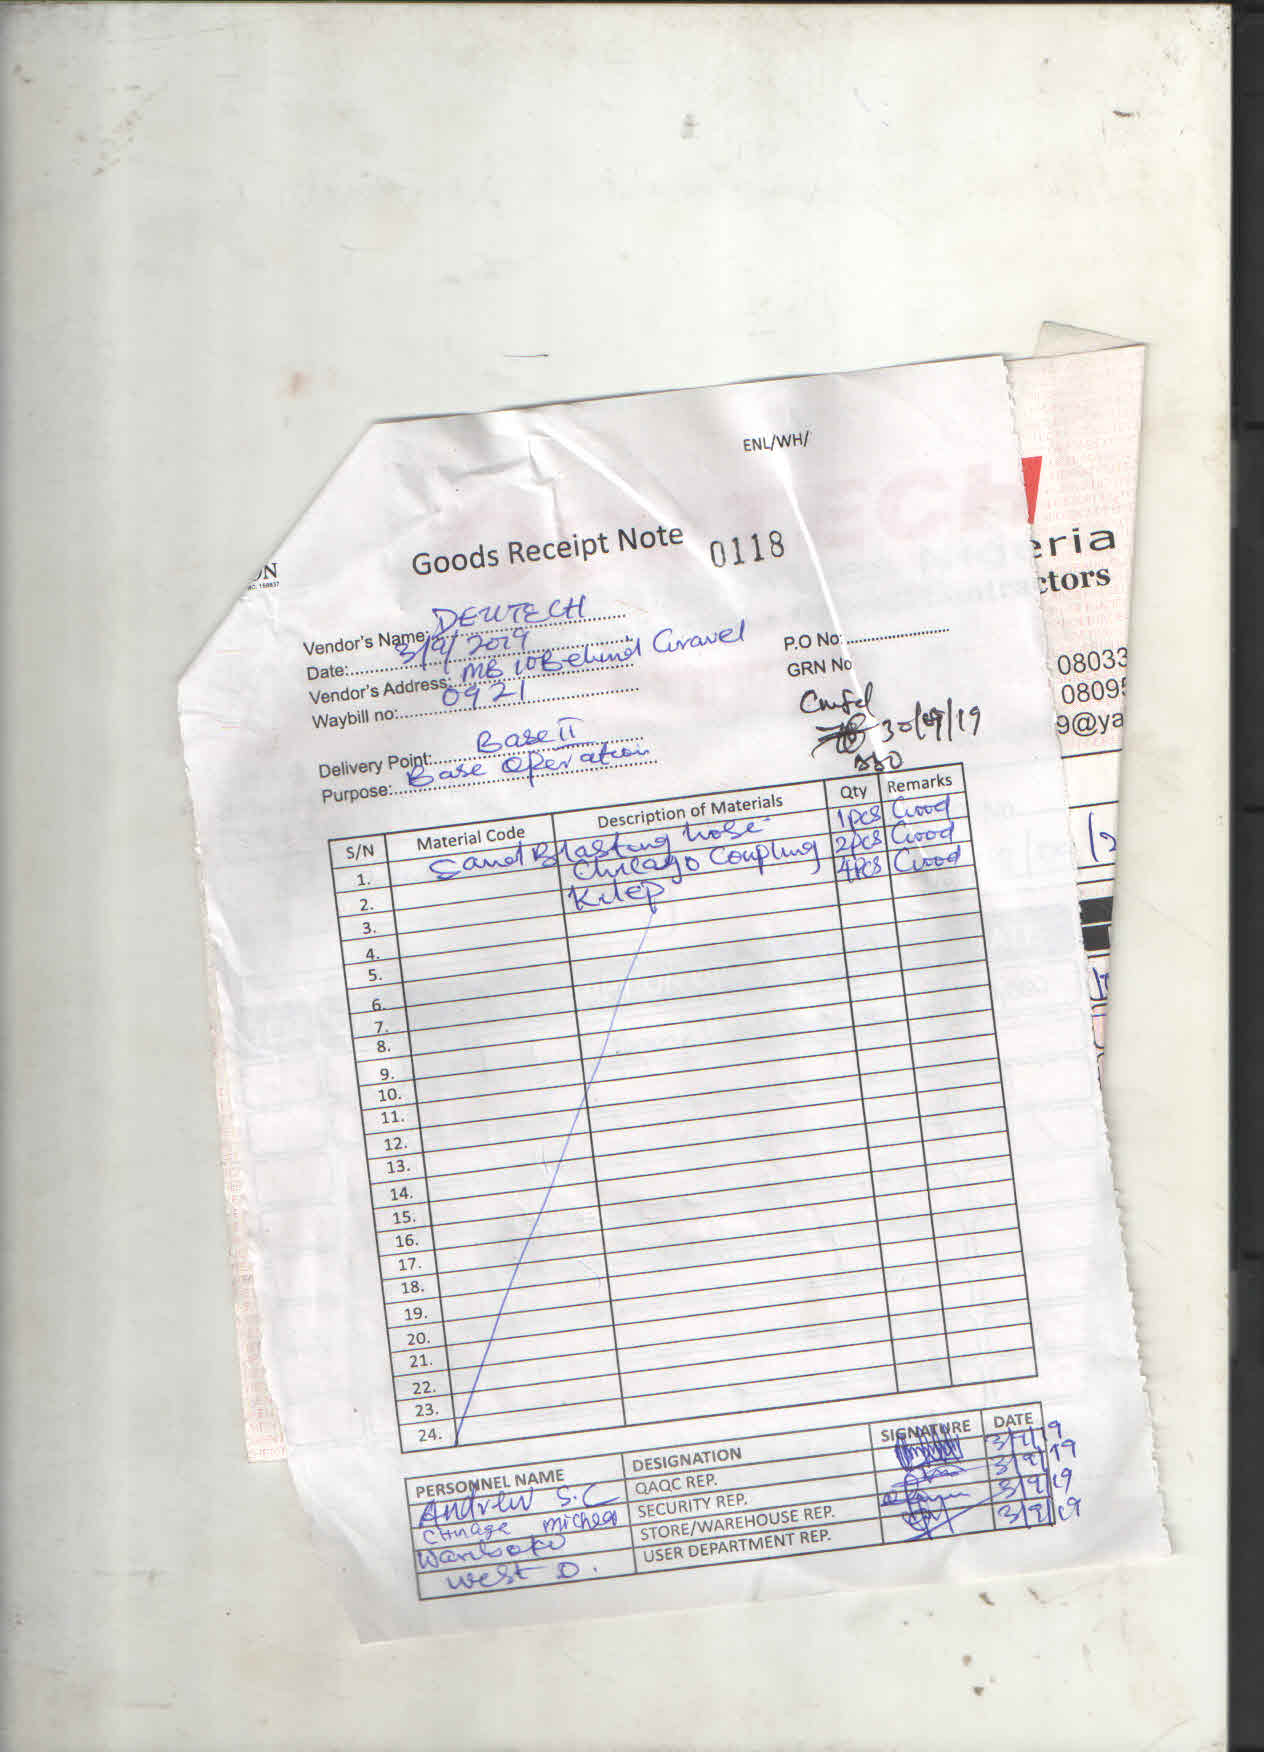 ENL/WH/
Goods Receipt Note 0118
ON
Vendor's Name: DEWTECH
Date: 3/9/2019
Vendor's Address: MB 10 Behind Gravel
Waybill no: 0921
P.O No:
GRN No
Delivery Point: Base II
Purpose: Base Operation
30/09/19
S/N Material Code Description of Materials Qty Remarks
1. Sand Blasting hose 1pcs Good
2. Chicago Coupling 2pcs Good
3. 4pcs Good
4.
5.
6.
7.
8.
9.
10.
11.
12.
13.
14.
15.
16.
17.
18.
19.
20.
21.
22.
23.
24.
PERSONNEL NAME DESIGNATION SIGNATURE DATE
Andrew S.C QAQC REP. 3/9/19
SECURITY REP. 3/9/19
STORE/WAREHOUSE REP. 3/9/19
West D. USER DEPARTMENT REP. 3/9/19
eria
ctors
08033
0809
9@ya